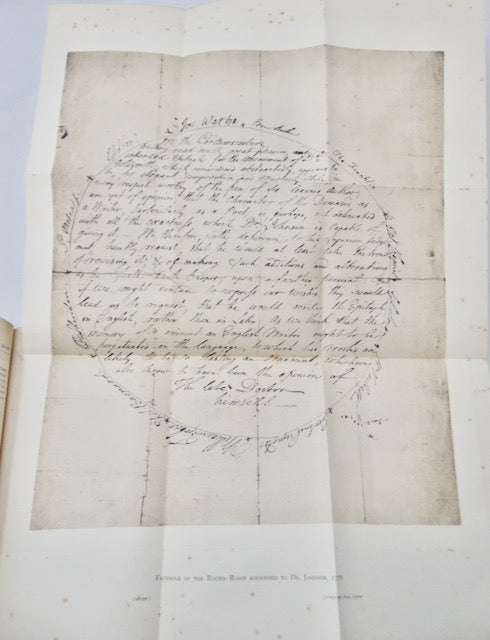 Jos Warton
Edm Burke
Tho. Franklin
We the Circumscribers,
having read with great pleasure, an
intended Epitaph for the Monument of Dr
Goldsmith, which considered abstractedly, appears to
be, for elegant Composition and Masterly Stile, in
every respect worthy of the pen of its learned Author,
are yet of opinion, that the Character of the Deceased as
a Writer, particularly as a Poet, is, perhaps, not delineated
with all the exactness which Dr Johnson is Capable of
giving it. We therefore, with deference to his superior Judgement,
humbly request, that he would at least take the trouble
of revising it, & of making such additions and alterations
as he shall think proper upon a farther perusal. But
if we might venture to express our wishes, they would
lead us to request, that he would write the Epitaph
in English, rather than in Latin: As We think that the
memory of so eminent an English Writer ought to be
perpetuated in the language, to which his works are
likely to be so lasting an Ornament, Which we
also know to have been the opinion of
The late Doctor
himself.
FACSIMILE OF THE ROUND ROBIN ADDRESSED TO DR. JOHNSON, 1776